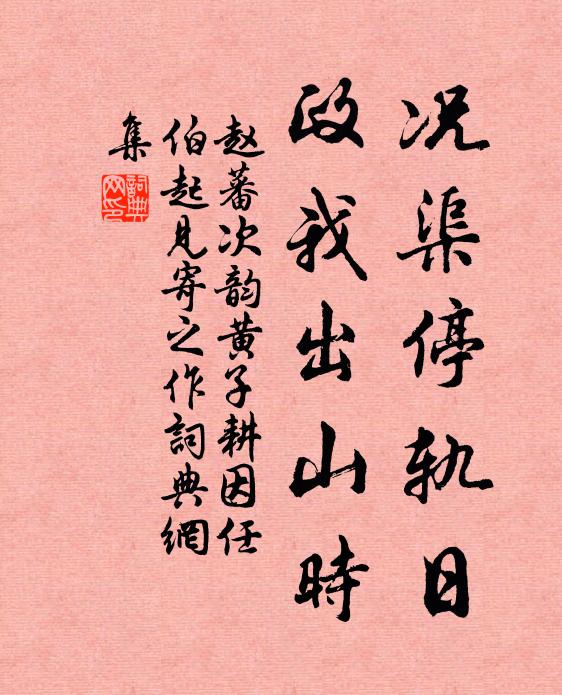 况渠停轨日
政我出山時
赵蕃次韵黄子耕因任
伯起見寄之作詞典網
集
詞典网印